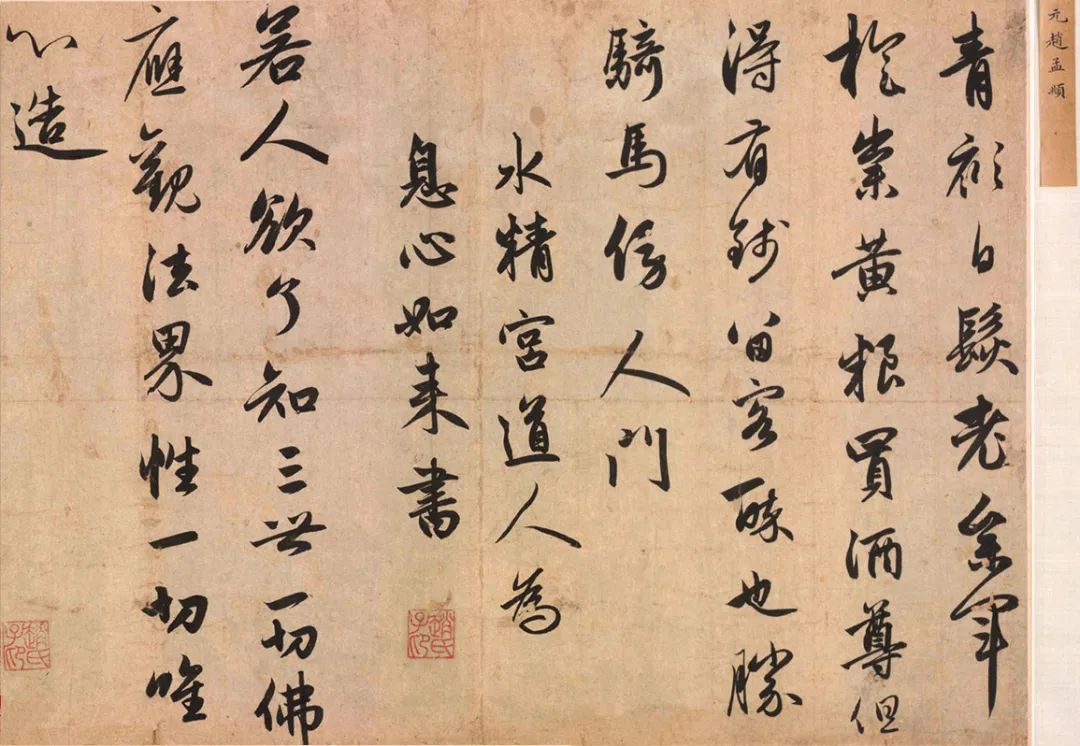 元趙孟頫
青衫白髮老參軍
旋粜黃粮買酒尊但
得有錢留客醉也勝
騎馬傍人門
水精宮道人為
息心如来書
若人欲了知三世一切佛
應觀法界性一切唯
心造
趙氏子昂
趙氏子昂